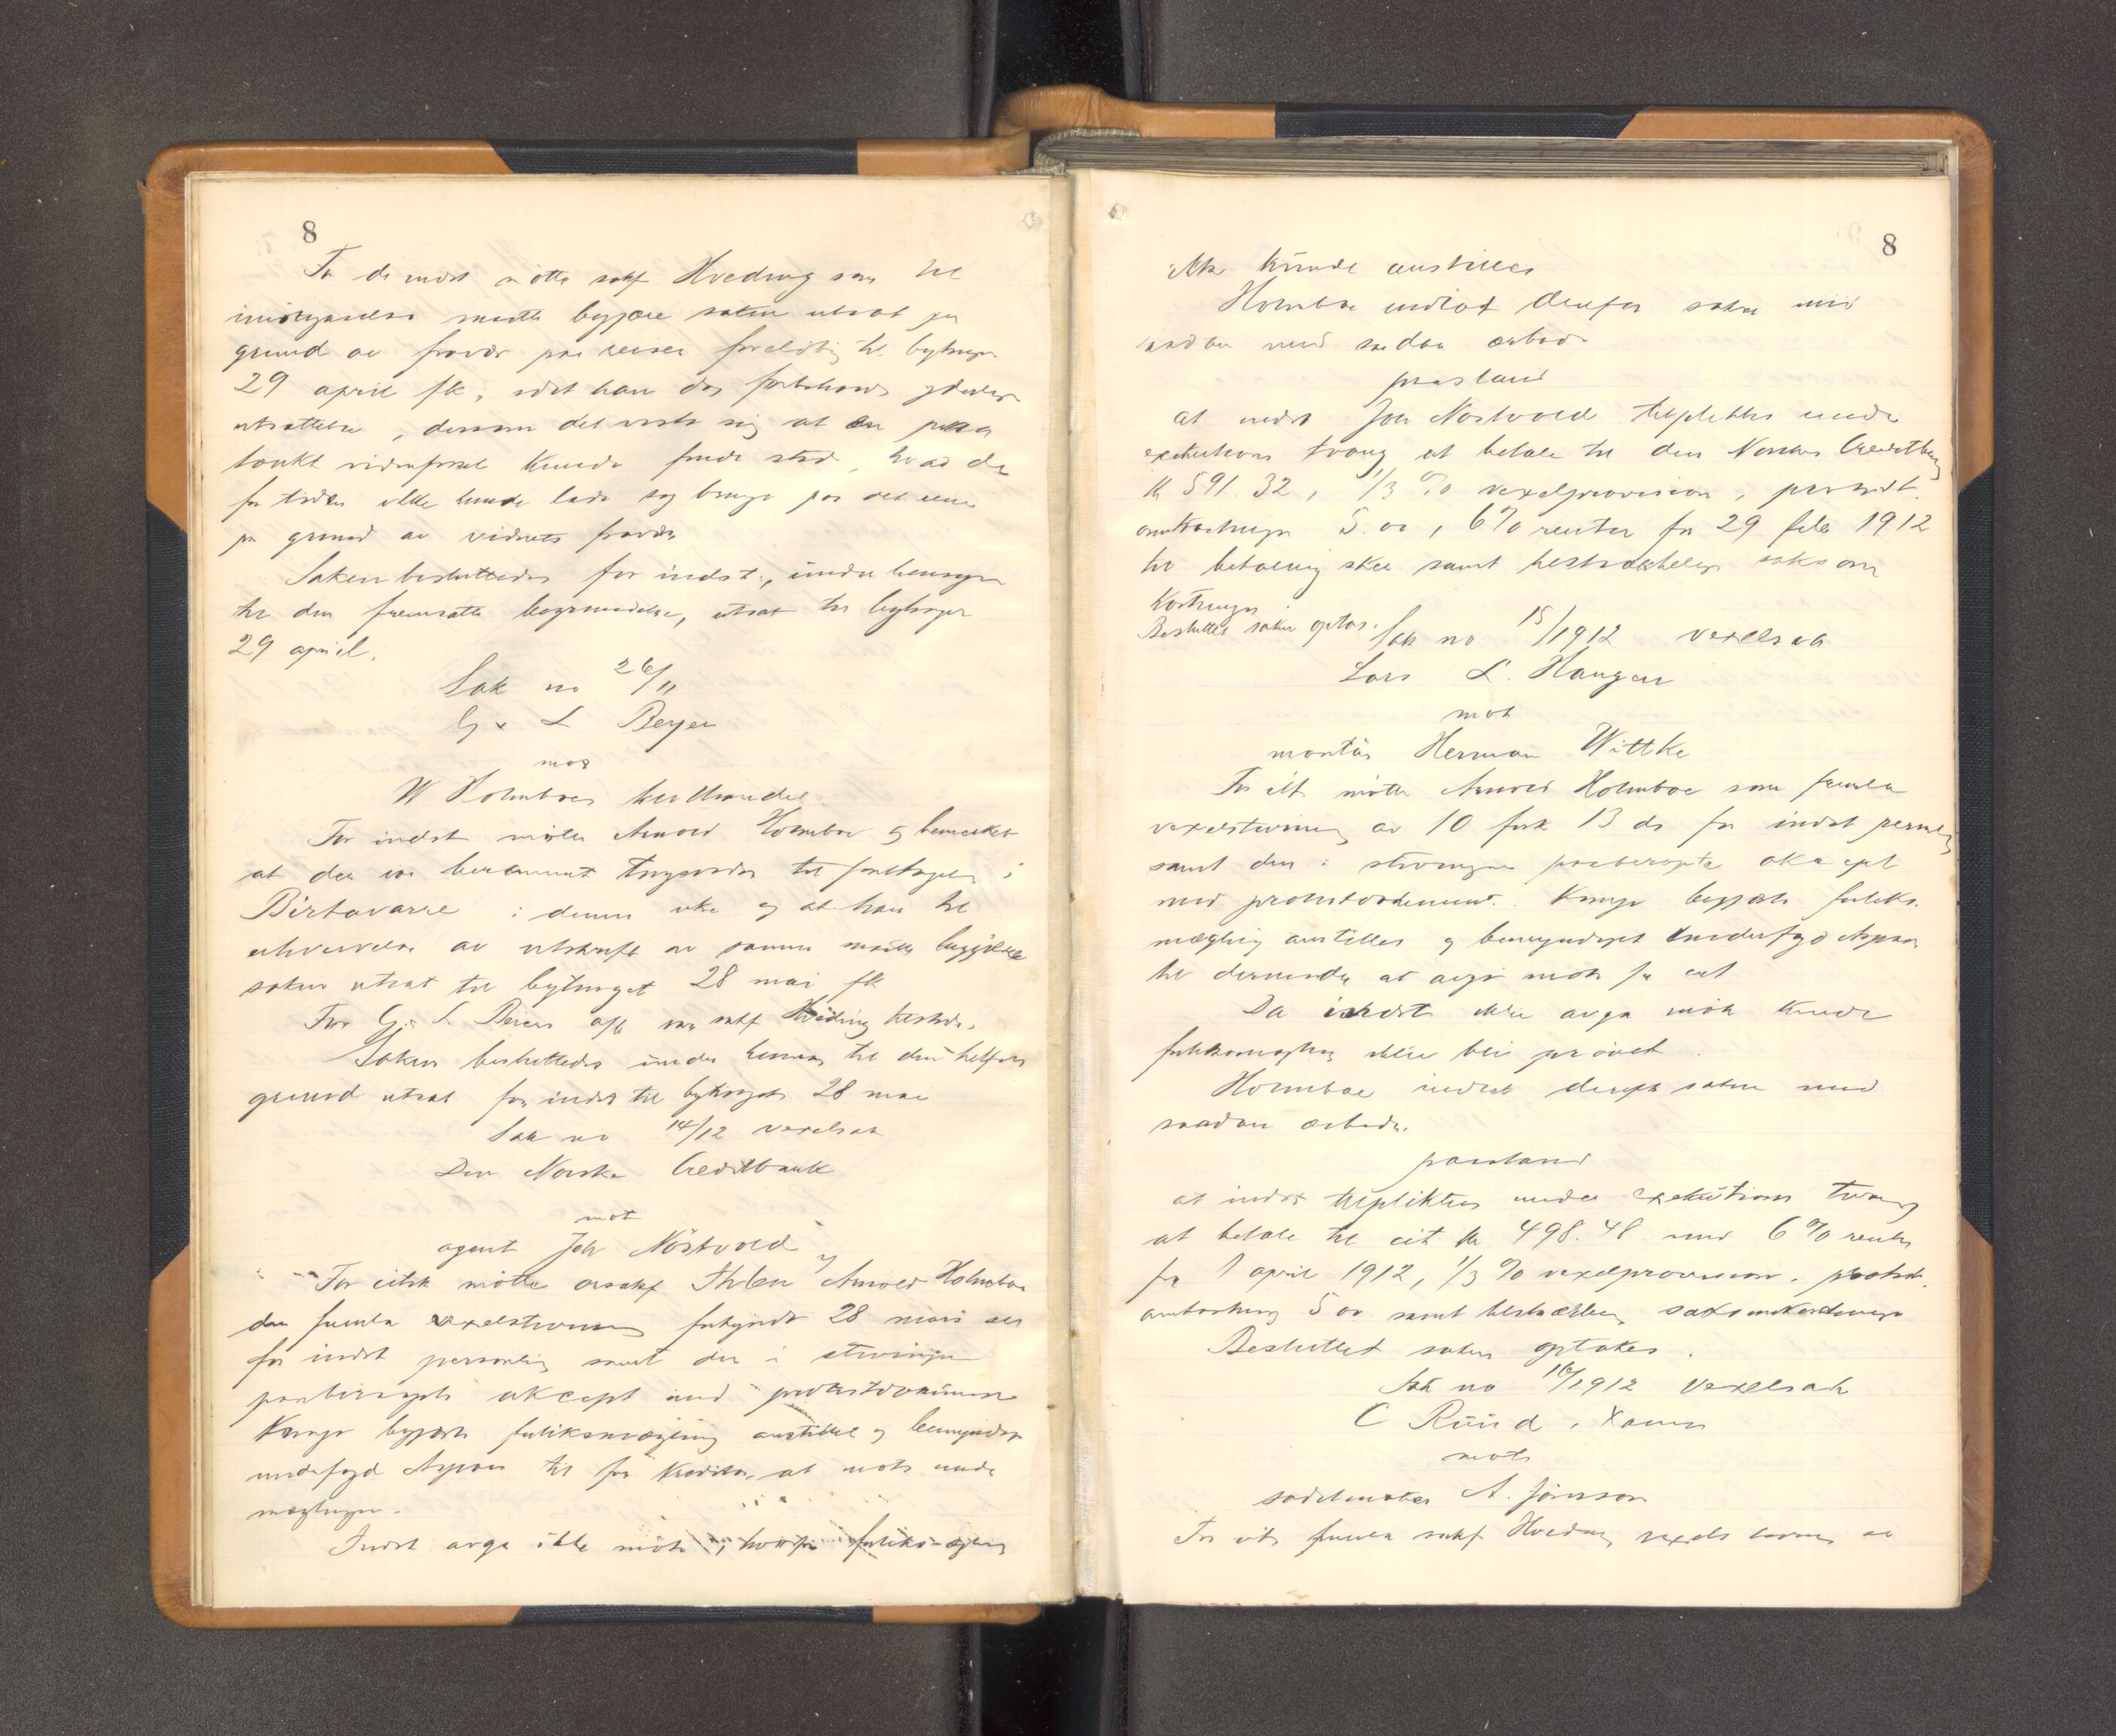 8
For de indst mötte sakf Hveding som til
imötegaaelse maatte begjære saken utsat paa
grund av fravær paa reiser foreløbig til bytinget
29 april fk, idet han dog forbeholdt yderligere
utsættelse, dersom det viste sig at den paa
tænkt vidneførsel kunde finde sted, hvad der
for tiden ikke kunde lade sig bringe paa det rene
paa grund av vidnets fravær
Saken besluttedes for indst., under hensyn
til den fremsatte begjæring, utsat til bytinget
29 april.
Sak no 26/11
G & L Beyer
mot
W Holmboes kulhandel
For indst mötte Arnold Holmboe og bemerket
at der var berammet tingsvidne til foretagelse i
Birtavarre i denne uke og at han til
erhvervelse av utskrift av samme maatte begjære
saken utsat til bytinget 28 mai fk
For G. & L Beiers afk var sakf Hveding tilstede.
Saken besluttedes under hensyn til den
grund utsat for indst til bytinget 28 mai
Sak no 14/12 vexelsak
Den Norske Creditbank
mot
agent Joh Nöstvold
For citsk mötte orsakf Ihlen og Arnold Holmboe
der fremla vexelstevning forkyndt 28 mars
for indst personlig samt den i stevningen
paaberaapte akcept med protestdokument
Krævet begjært forliksmægling anstillet og bemyndiget
underfogd Aspaas til for kreditor at møte under
mæglingen.
Indst avga ikke møte, hvorfor forliksmægling
8
ikke kunde anstilles
Holmboe indlot derefter saken med
saadan med saadan ærbødig
paastand
at indst Joh Nöstvold tilpliktes under
exekutions tvang at betale til den Norske Creditbank
kr 591.32, 1/3 % vexelprovision, protest
omkostninger 5.00, 6% renter fra 29 feb 1912
til betaling sker samt tilstrækkelige saksom
kostninger.
Besluttet saken optas.
Sak no 15/1912 vexelsak
Lars L. Haugen
mot
montör Herman Wittke
For cit mötte Arnold Holmboe som fremla
vexelstevning av 10 fork 13 ds for indst personlig
samt den i stevningen paaberopte akcept
med protestdokument. Krævet begjært forliks
mægling anstillet og bemyndiget underfogd Aspaas
til derunder at avgi møte for cit
Da indst ikke avga møte kunde
forliksmægling ikke bli prövet.
Holmboe indlot derefter saken med
saadan ærbødig
paastand
at indst tilpliktes under exekutions tvang
at betale til cit kr 498.48 med 6% renter
fra 1 april 1912, 1/3 % vexelprovision, protest
omkostning 5 00 samt tilstrækkelig saksomkostninger
Besluttet saken optakes.
Sak no 16/1912 Vexelsak
C Ruud,
mot
sadelmaker A. Jönsson
For cit fremla sakf Hveding vexelstevning av